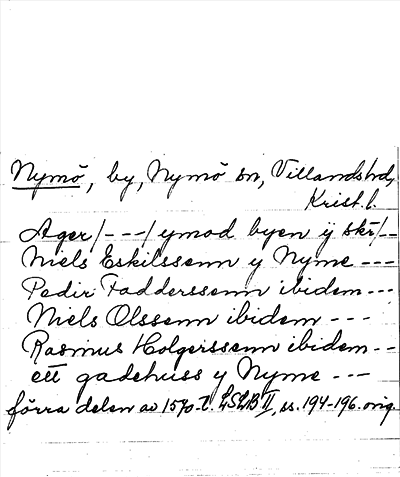 Nymö, by, Nymö sn, Villands hd,
Krist. l.
Ager /---/ ymod byen ÿ skr/--
Niels Eskilssenn y Nyme ---
Pedir Fadderssenn ibidem ---
Niels Olssenn ibidem ---
Rasmus Holgerssenn ibidem --
ett gadehuss y Nyme ---
förra delen av 1570-t. LSLB II, ss. 194-196. orig.